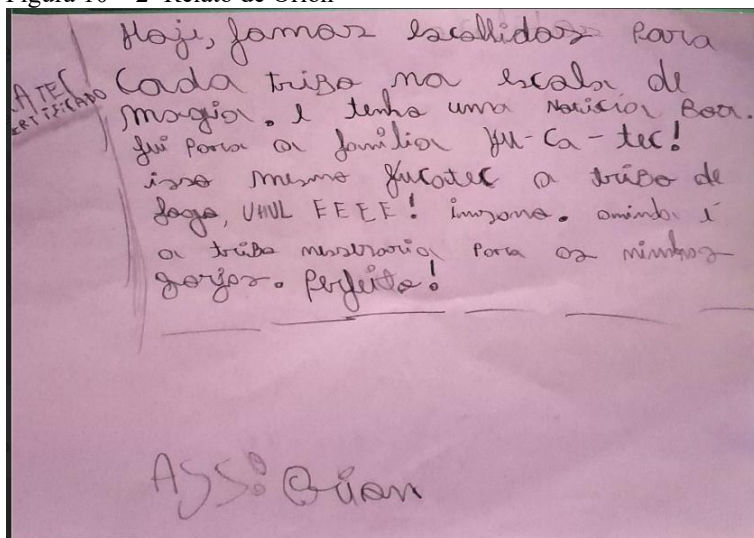 Figura 10 – 2º Relato de Órion
Hoje, fomos escolhidos para
cada tribo na escola de
magia. E tenho uma Noticia Boa.
fui para a família Yu-Ca-tec!
isso mesmo Yucatec a tribo de
fogo, UHUL EEEE! insano. ainda é
a tribo nessesaria para os minhas
forjas. Perfeito!
ATEC
CERTIFICADO
ASS: Órion